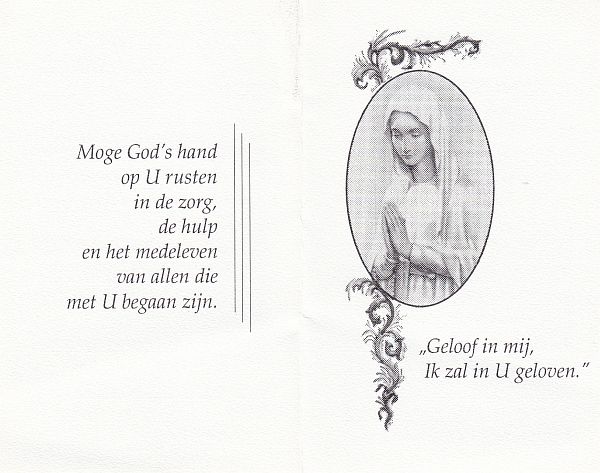 Moge God's hand
op U rusten
in de zorg,
de hulp
en het medeleven
van allen die
met U begaan zijn.
„Geloof in mij,
Ik zal in U geloven."